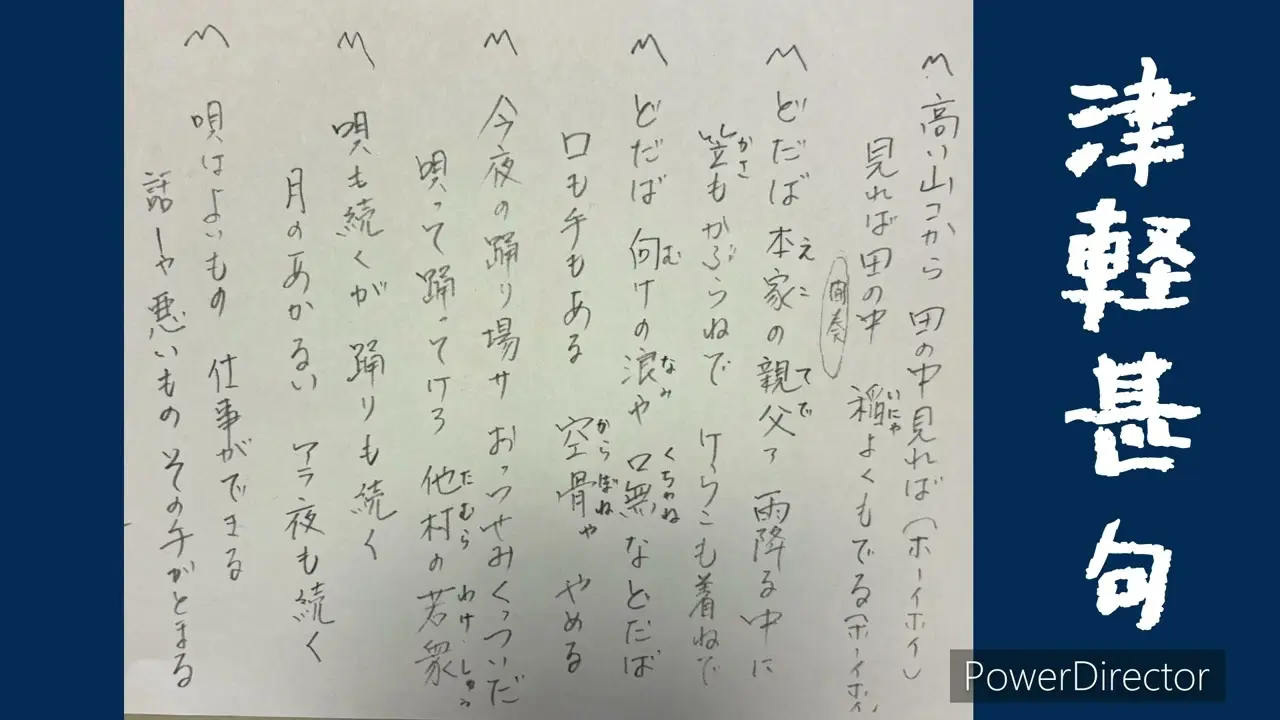 津軽甚句
〽 高い山コから 田の中見れば(ホーイホイ)
見れば田の中 稲よくもでる(ホーイホイ)
いにゃ
間奏
〽 どだば 本家の親父ァ 雨降る中に
えこ てで
笠もかぶらねで けらこも着ねで
かさ
〽 どだば 向けの浪や 口無なとどだば
む なみ くちゃね
口も手もある 空骨や やめる
からぼね
〽 今夜の踊り場サ おっつせみくっついだ
唄って踊ってけろ 他村の若衆
たむら わけしゅう
〽 唄も続くが 踊りも続く
月のあかるい アラ夜も続く
〽 唄はよいもの 仕事ができる
話しゃ悪いもの その手がとまる
PowerDirector